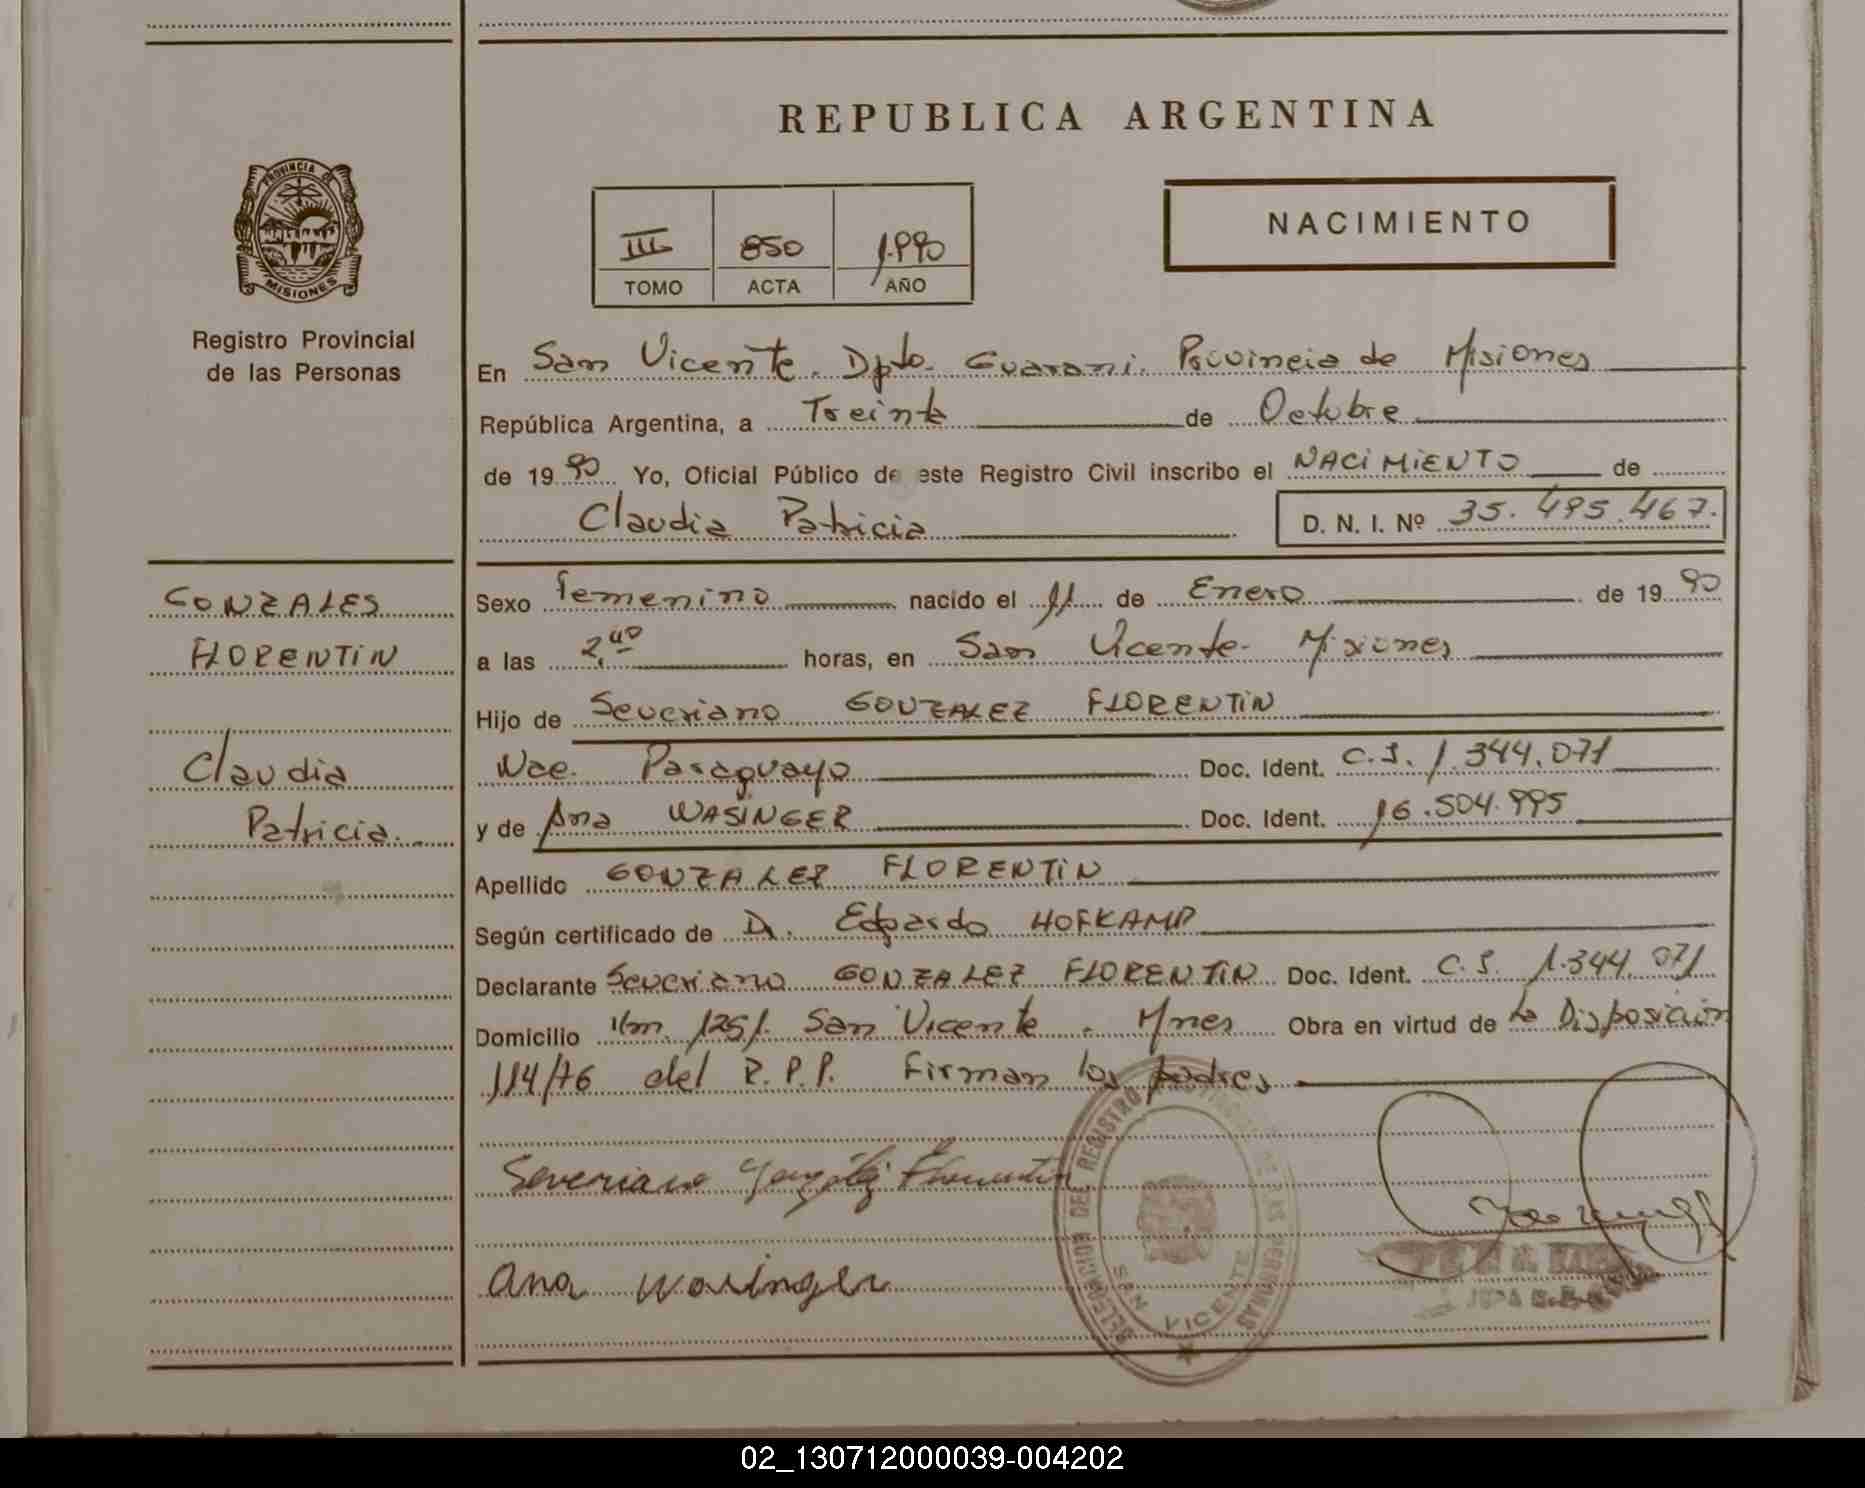 REPUBLICA ARGENTINA
PROVINCIA DE
MISIONES
Registro Provincial
de las Personas
III 850 1.990
TOMO ACTA AÑO
NACIMIENTO
En San Vicente. Dpto. Guarani. Provincia de Misiones
República Argentina, a Treinta de Octubre
de 1990 Yo, Oficial Público de este Registro Civil inscribo el NACIMIENTO de
Claudia Patricia D. N. I. Nº 35.495.467.
GONZALES
FLORENTIN
Claudia
Patricia.
Sexo Femenino nacido el 11 de Enero de 1990
a las 2,40 horas, en San Vicente- Misiones
Hijo de Severiano GONZALEZ FLORENTIN
Nac. Paraguayo Doc. Ident. C.I. 1.344.071
y de Ana WASINGER Doc. Ident. 16.504.995
Apellido GONZALEZ FLORENTIN
Según certificado de Dr. Edgardo HOFKAMP
Declarante Severiano GONZALEZ FLORENTIN Doc. Ident. C.I. 1.344.071
Domicilio Km. 1251. San Vicente. Mnes Obra en virtud de la Disposición
114/76 del R.P.P. Firman los padres
Severiano González Florentin
Ana Wasinger
DELEGACION DEL REGISTRO DE LAS PERSONAS
SAN VICENTE
02_130712000039-004202